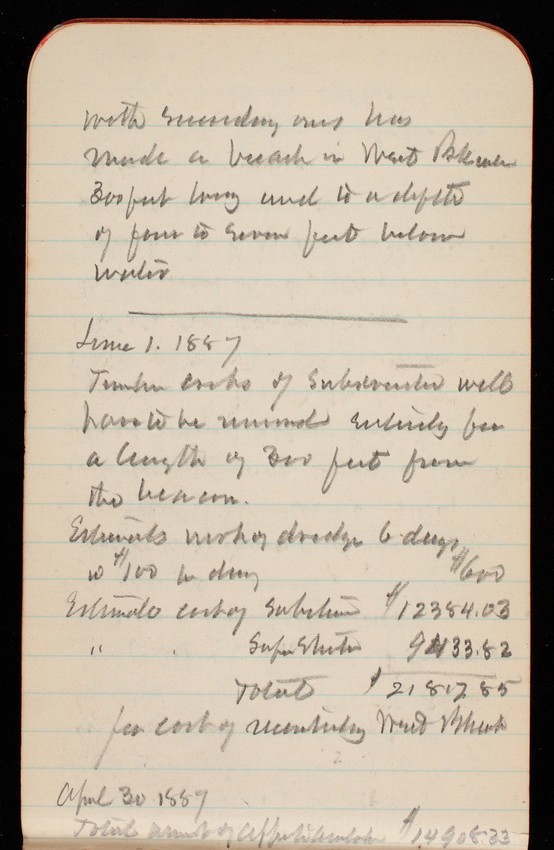 with secondary ones has
made a breach in West Bkwater
300 feet long and to a depth
of four to seven feet below
water
June 1. 1887
Timber cribs of Substructure will
have to be removed entirely for
a length of 300 feet from
the beacon.
Estimate work of dredge 6 days
@ $100 per day $600
Estimate cost of Substructure $12384.03
" " SupStructure 9433.82
Total $21817.85
for cost of West Bkwater
April 30 1887
Total amount of $14908.33